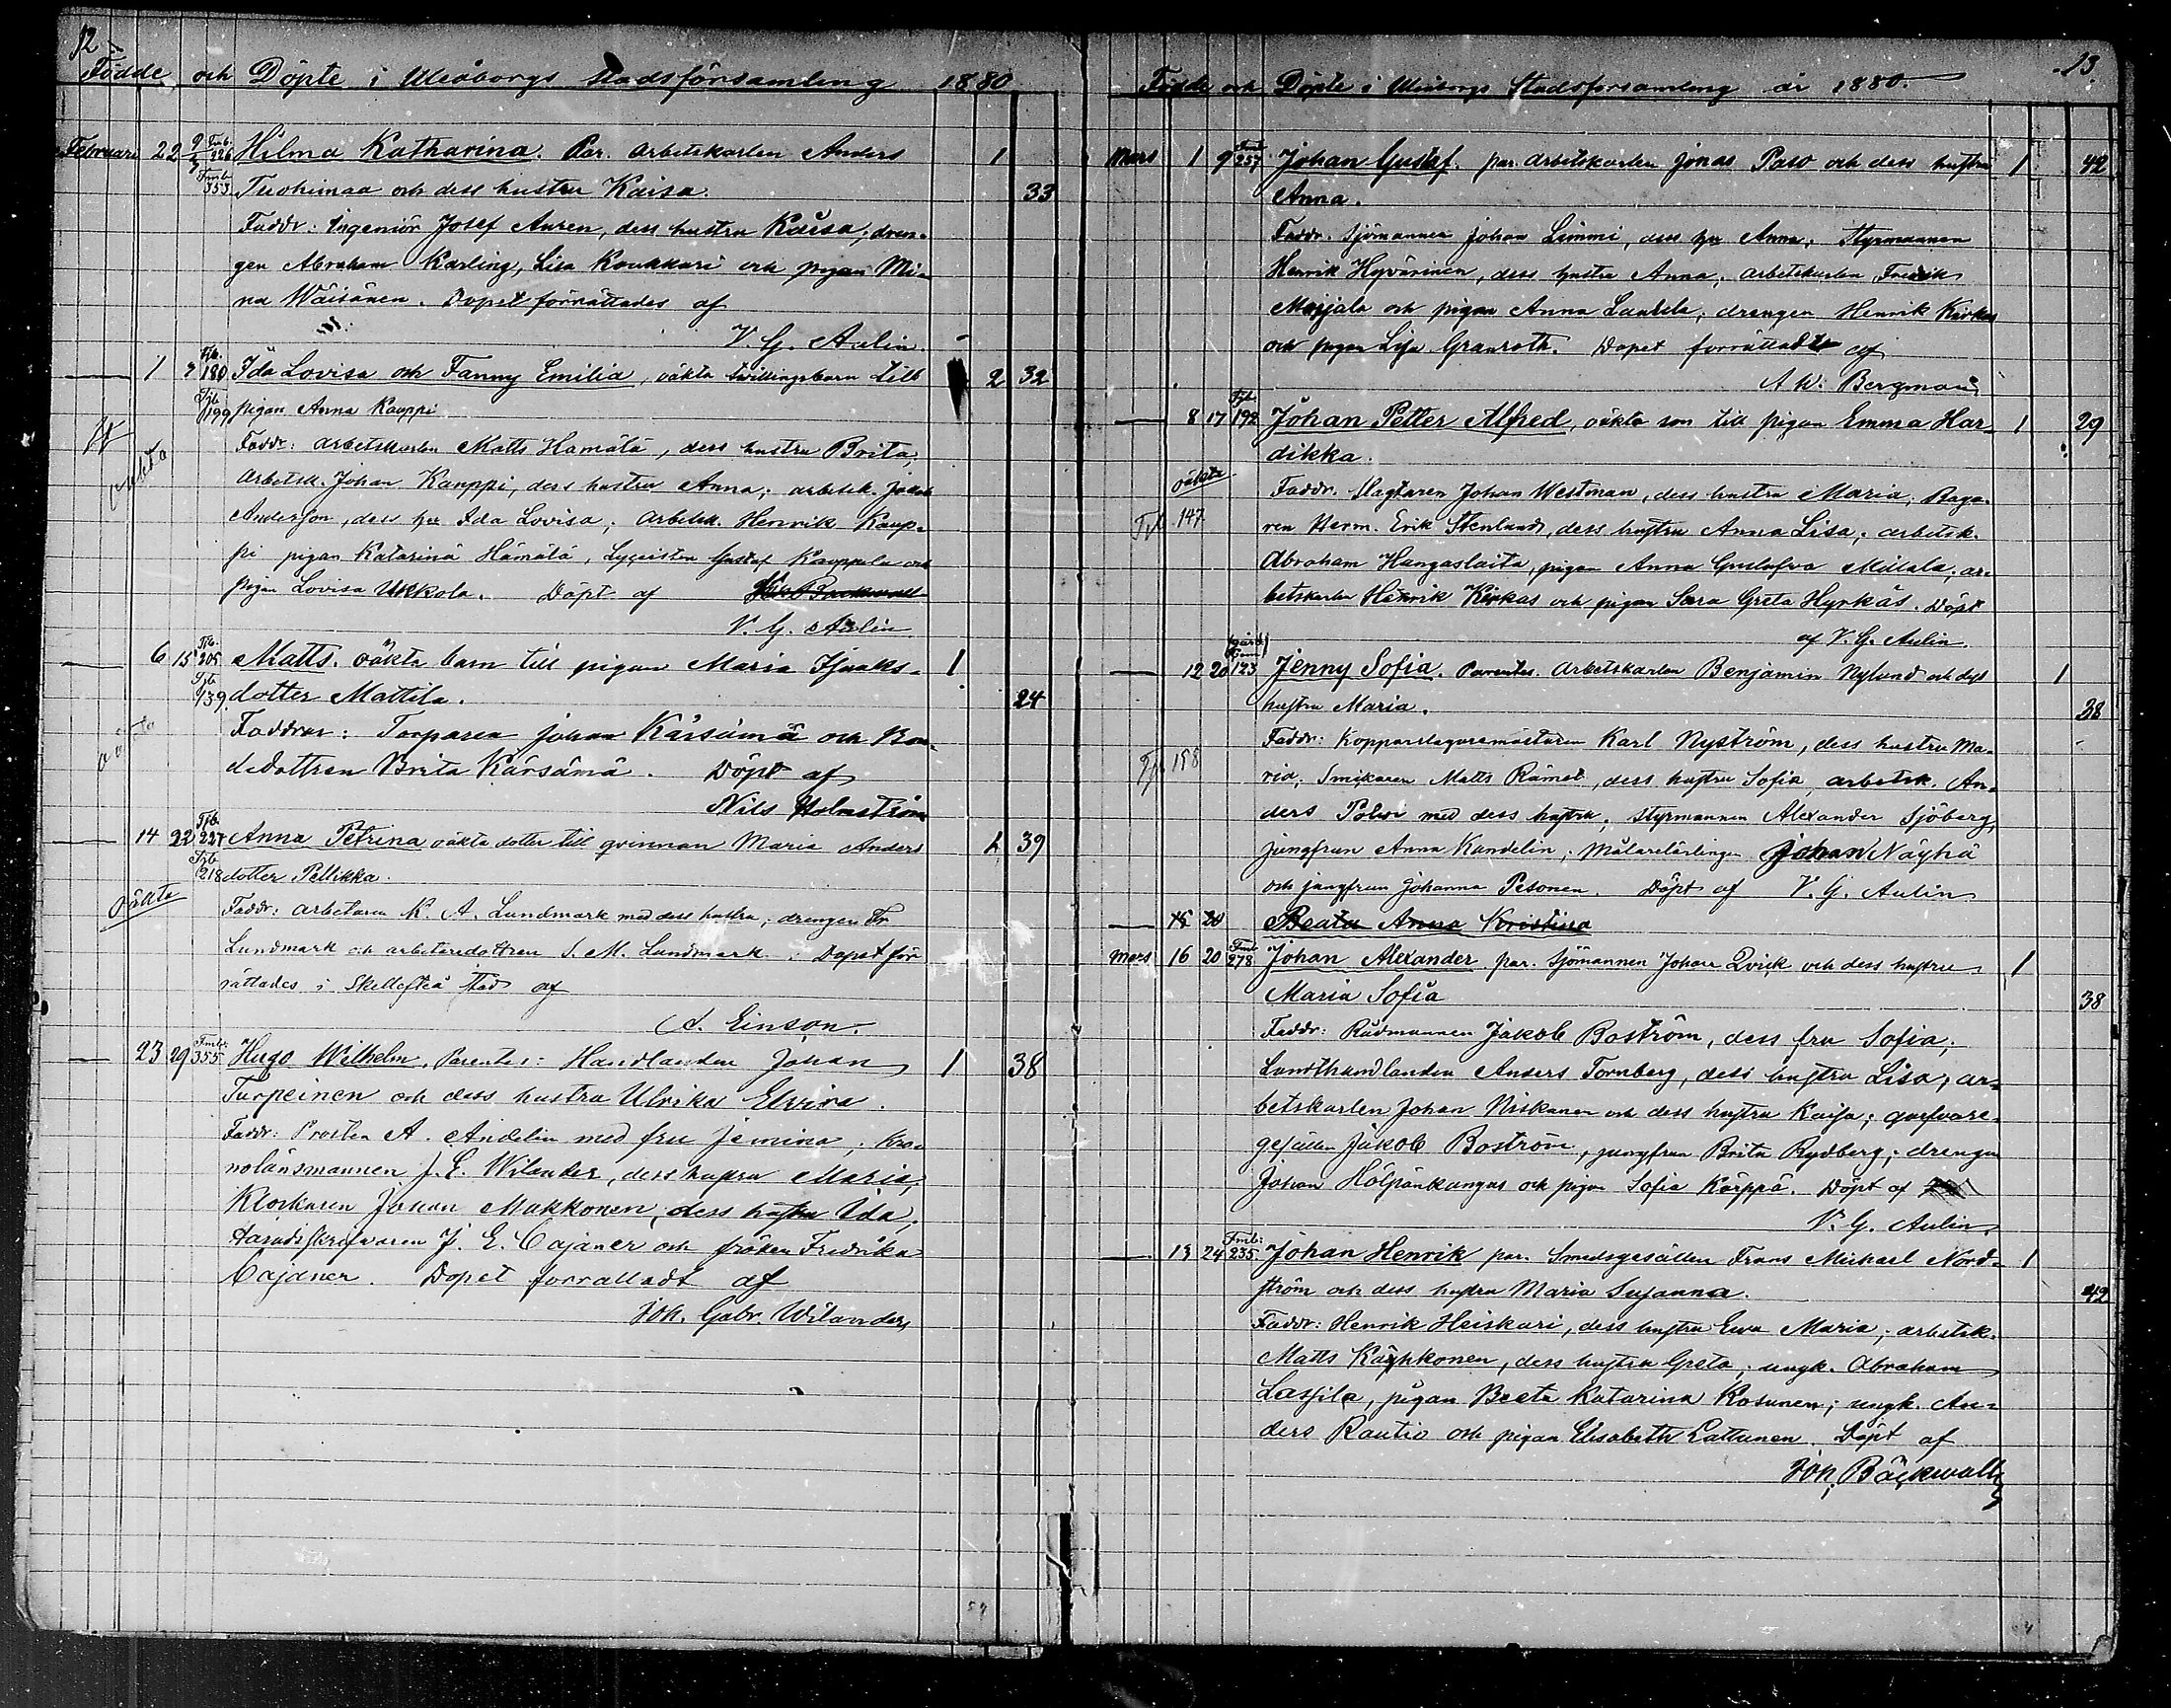 12
Födde och Döpte i Uleåborgs stadsförsamling 1880
Februari 22 9/3 Fmb. 226 Hilma Katharina. Par. Arbetskarlen Anders 1
Fmb 353 Tuohimaa och dess hustru Kaisa. 33
Faddr: Ingeniör Josef Auren, dess hustru Kaisa; dren-
gen Abraham Karling, Lisa Koukkari och pigan Mi-
na Wäisänen. Dopet förrättades af
V. G. Aulin.
1 9 Fjb. 180 Ida Lovisa och Fanny Emilia, oäkta twillingsbarn till 2 32
Fjb 199 pigan Anna Kauppi
Faddr: arbetskarlen Matts Hamälä, dess hustru Brita,
oäkta
Arbetsk. Johan Kauppi, dess hustru Anna; arbetsk. Jakob
Anderson, dess hu Ida Lovisa; Arbetsk. Henrik Kaup-
pi pigan Katarina Hämälä, Lyceisten Gustaf Kauppila och
pigan Lovisa Ukkola. Döpt af
V. G. Aulin
6 15 Fjb. 205 Matts. oäkta barn till pigan Maria Isaaks- 1
Fjb 139 dotter Mattila. 24
oäkta
Faddrar: Torparen Johan Kärsämä och Bon-
dedottren Brita Kärsämä. Döpt af
Nils Holmström
14 22 Fjb. 227 Anna Petrina oäkta dotter till qvinnan Maria Anders 1 39
Fjb 218 dotter Pellikka.
oäkta
Faddr: arbetaren K. A. Lundmark med dess hustru; drengen Fr
Lundmark och arbetaredottren S. M. Lundmark. Dopet för
rättades i Skellefteå stad af
A. Einson.
23 29 Fmb: 355 Hugo Wilhelm. Parentes: Handlanden Johan 1 38
Turpeinen och dess hustru Ulrika Elvira.
Faddr: Prosten A. Andelin med fru Jemina; Kro-
nolänsmannen J. E. Wilander, dess hustru Maria,
Klockaren Johan Makkonen, dess hustru Ida,
Häradsskrifvaren J. E. Cajaner och fröken Fredrika
Cajaner. Dopet förrättadt af
Joh. Gabr. Wilander
13.
Födde och Döpte i Uleåborgs Stadsförsamling år 1880.
Mars 1 9 Fmb 257 Johan Gustaf. par. arbetskarlen Jonas Paso och dess hustru 1 42
Anna.
Faddr. Sjömannen Johan Limmi, dess hu Anna; Styrmannen
Henrik Hyvärinen, dess hustru Anna; arbetskarlen Fredrik
Marjala och pigan Anna Laulila; drengen Henrik Kirkas
och pigan Lisa Granroth. Dopet förrättadt af
A. W. Bergman
8 17 Fjb. 192 Johan Petter Alfred, oäkta son till pigan Emma Har- 1 29
dikka.
oäkta
Faddr. Slagtaren Johan Westman, dess hustru Maria; Baga-
Fjb 147
ren Herm. Erik Stenlund, dess hustru Anna Lisa; arbetsk.
Abraham Hangaslaita, pigan Anna Gustafva Millala; ar-
betskarlen Henrik Kirkas och pigan Sara Greta Hyrkäs. Döpt
af V. G. Aulin.
12 20 123 Jenny Sofia. Parentes. Arbetskarlen Benjamin Nylund och dess 1
hustru Maria. 38
Faddr: Kopparslagaremästaren Karl Nyström, dess hustru Ma-
198
ria; Smikaren Matts Rämet, dess hustru Sofia, arbetsk. An-
ders Polso med dess hustru; Styrmannen Alexander Sjöberg,
jungfrun Anna Kandelin; Målarelärlingen Johan Näyhä
och jungfrun Johanna Pesonen. Döpt af V. G. Aulin
15 20 Beata Anna Kristina
Mars 16 20 Fmb 278 Johan Alexander par. Sjömannen Johan Qvick och dess hustru 1
Maria Sofia 38
Faddr: Rådmannen Jakob Boström, dess fru Sofia;
Landthandlanden Anders Tornberg, dess hustru Lisa; ar-
betskarlen Johan Niskanen och dess hustru Kaisa; garfvare-
gesällen Jakob Boström, jungfrun Brita Rydberg; drengen
Johan Hölpänkangas och pigan Sofia Kärppä. Döpt af
V. G. Aulin.
13 24 Fmb: 235 Johan Henrik par. Smedsgesällen Frans Michael Nord- 1
ström och dess hustru Maria Susanna. 42
Faddr: Henrik Heiskari, dess hustru Eva Maria; arbetsk.
Matts Käyhkönen, dess hustru Greta; ungk. Abraham
Lassila, pigan Beata Katarina Kosunen; ungk. An-
ders Rautio och pigan Elisabeth Lattunen. Döpt af
Joh. Bäckwall